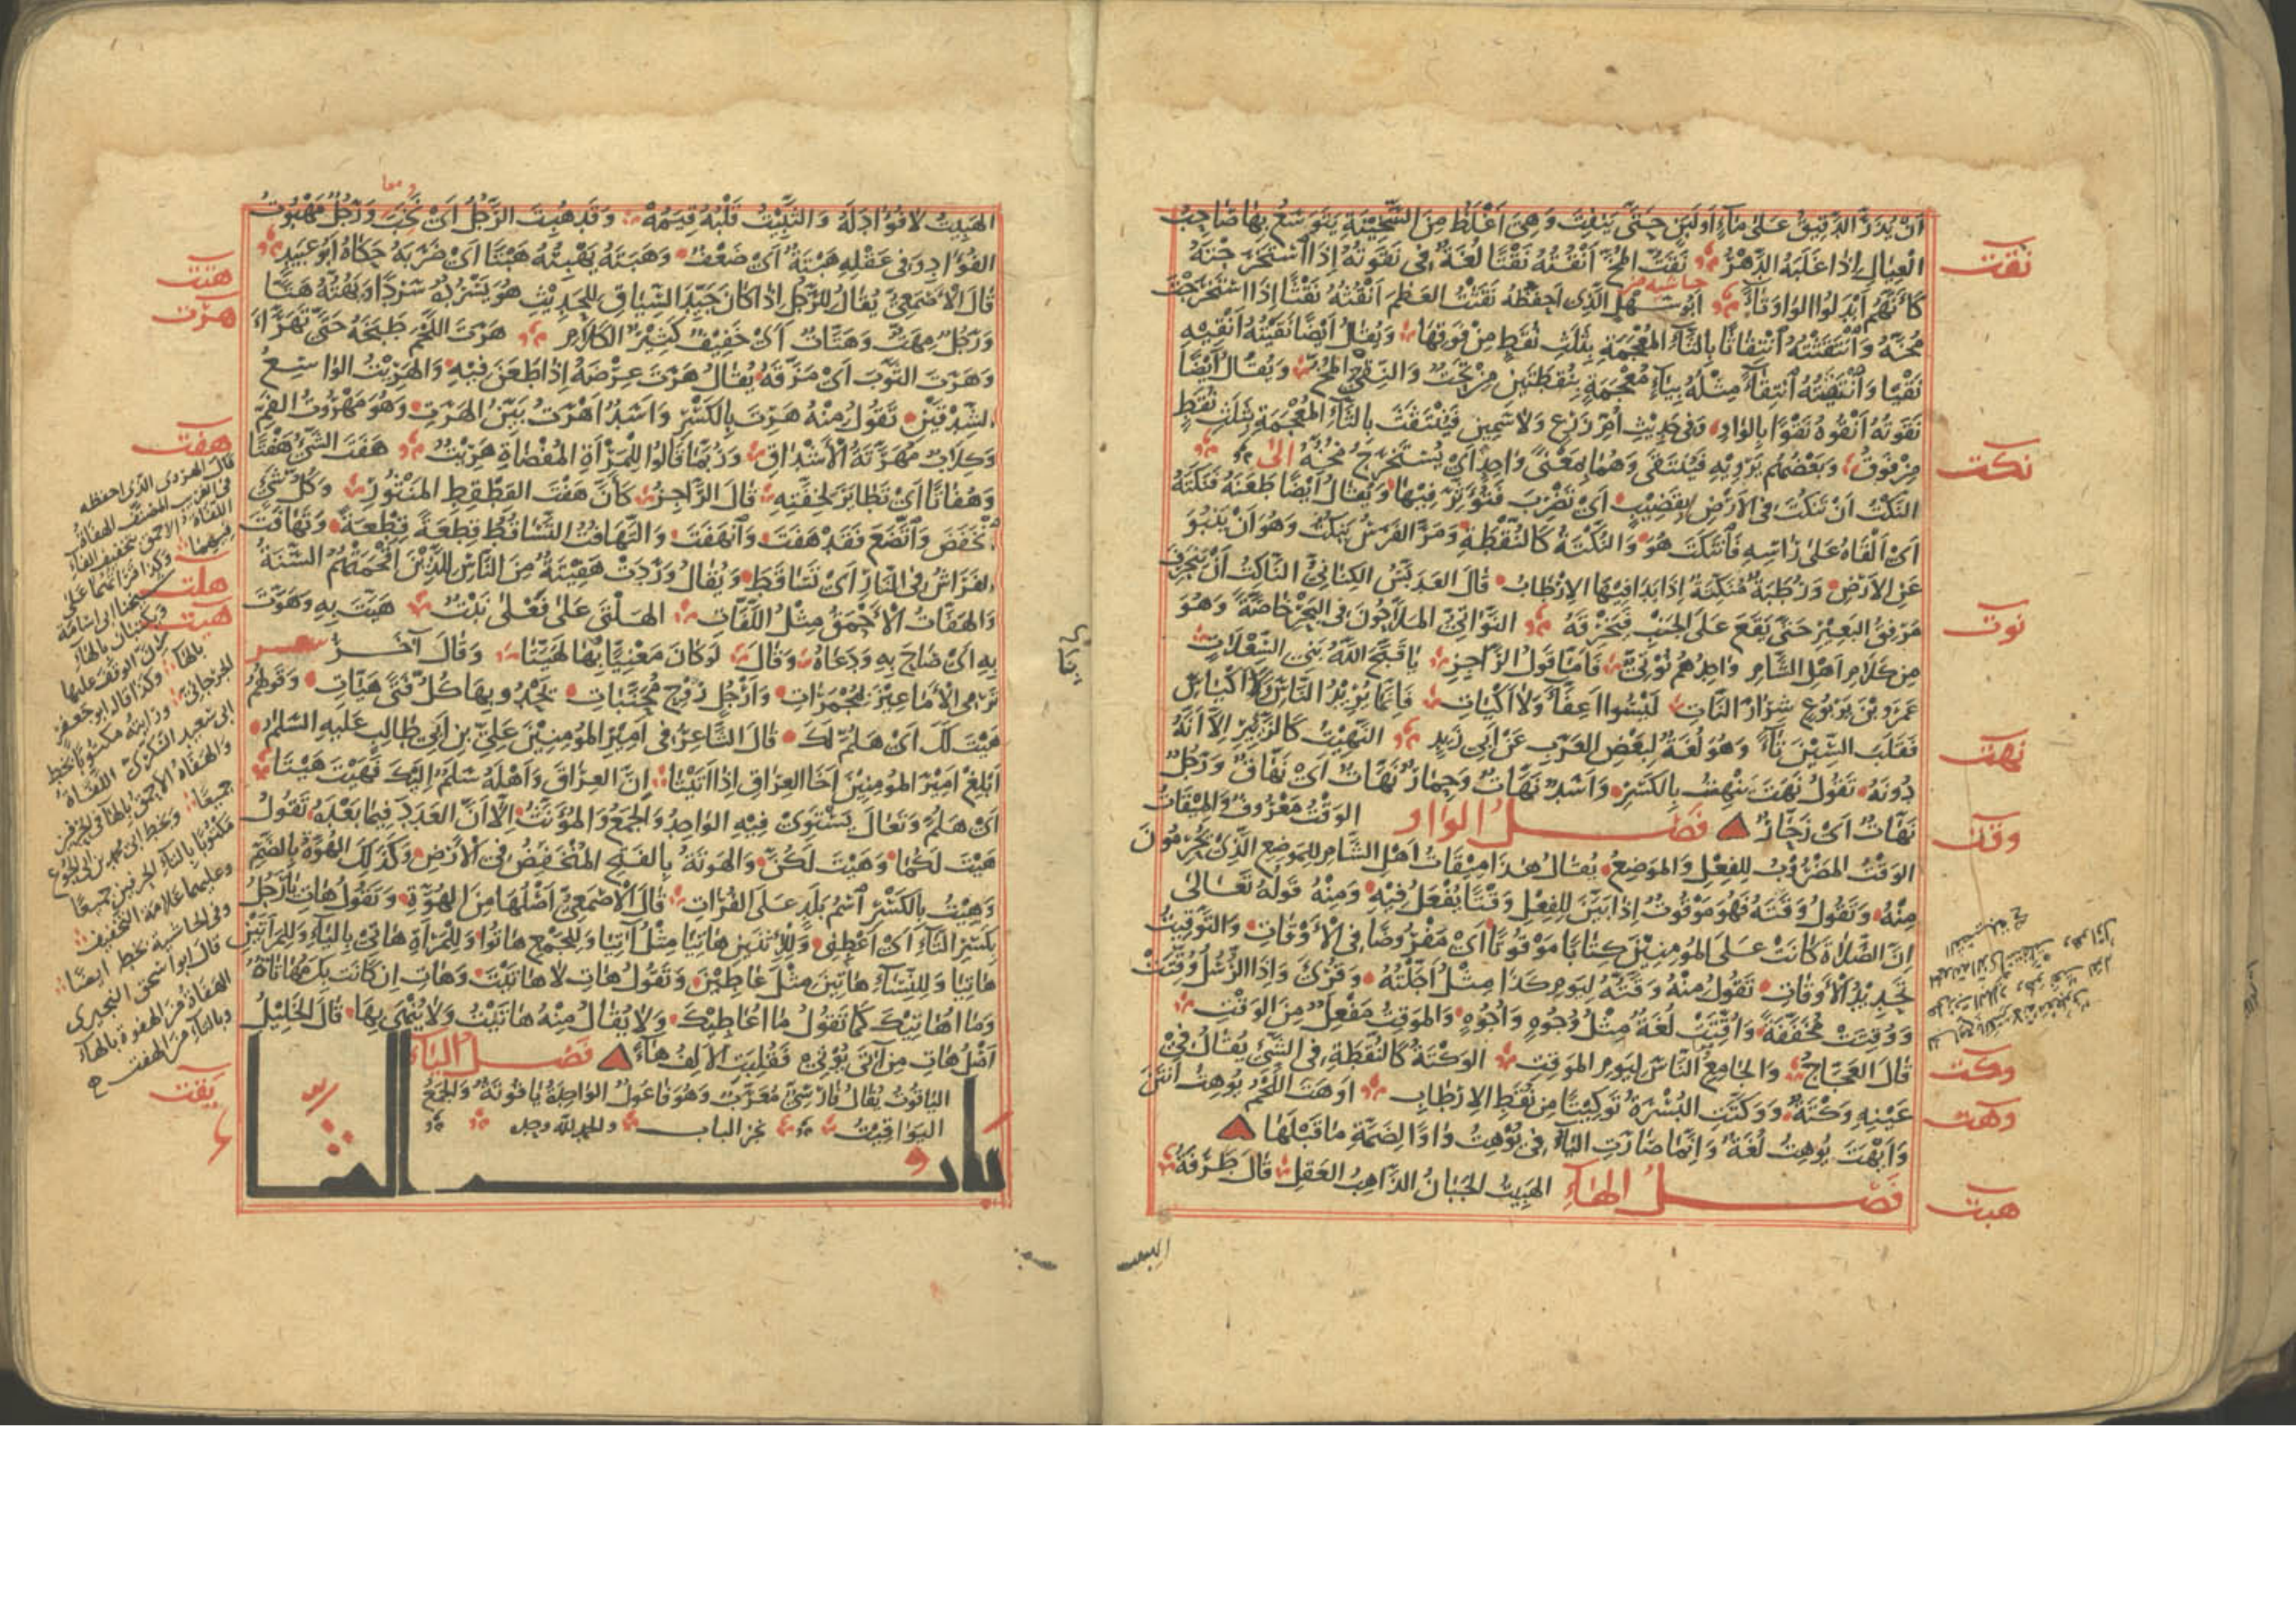 أَنْ يُذَرَّ الدَّقِيقُ عَلَى مَاءٍ أَوْ لَبَنٍ حَتَّى يَنْفِتَ وَهِيَ أَغْلَظُ مِنَ السَّخِينَةِ يَتَوَسَّعُ بِهَا صَاحِبُ
العِيَالِ إِذَا غَلَبَهُ الدَّهْرُ نَقَتُّ المُخَّ أَنْقُتُهُ نَقْتًا لُغَةٌ فِي نَقَوْتُهُ إِذَا اسْتَخْرَجْتَهُ
نقت
كَأَنَّهُمْ أَبْدَلُوا الوَاوَ تَاءً حاشية من أَبُو سَهْلٍ الَّذِي أَحْفَظُهُ نَقَثْتُ العَظْمَ أَنْقُثُهُ نَقْثًا إِذَا اسْتَخْرَجْتَ
مُخَّهُ وَانْتَقَثْتُهُ انْتِقَاثًا بِالثَّاءِ المُعْجَمَةِ بِثَلَثِ نُقَطٍ مِنْ فَوْقِهَا وَيُقَالُ أَيْضًا نَقَيْتُهُ أَنْقِيهِ
نَقْيًا وَانْتَقَيْتُهُ انْتِقَاءً مِثْلُهُ بِيَاءٍ مُعْجَمَةٍ بِنُقْطَتَيْنِ مِنْ تَحْتُ وَالنِّقْيُ المُخُّ وَيُقَالُ أَيْضًا
نَقَوْتُهُ أَنْقُوهُ نَقْوًا بِالوَاوِ وَفِي حَدِيثِ أُمِّ زَرْعٍ وَلَا سَمِينٍ فَيُنْتَقَثَ بِالثَّاءِ المُعْجَمَةِ بِثَلَثِ نُقَطٍ
مِنْ فَوْقُ وَبَعْضُهُمْ يَرْوِيهِ فَيُنْتَقَى وَهُمَا بِمَعْنًى وَاحِدٍ أَيْ يُسْتَخْرَجُ مُخُّهُ إلى
نكت
النَّكْتُ أَنْ تَنْكُتَ فِي الأَرْضِ بِقَضِيبٍ أَيْ تَضْرِبَ فَتُؤَثِّرَ فِيهَا وَيُقَالُ أَيْضًا طَعَنَهُ فَنَكَتَهُ
أَيْ أَلْقَاهُ عَلَى رَأْسِهِ فَانْتَكَتَ هُوَ وَالنُّكْتَةُ كَالنُّقْطَةِ وَمَرَّ الفَرَسُ يَنْكُتُ وَهُوَ أَنْ يَنْبُوَ
عَنِ الأَرْضِ وَرُطَبَةٌ مُنَكِّتَةٌ إِذَا بَدَا فِيهَا الإِرْطَابُ قَالَ العَدَبَّسُ الكِنَانِيُّ النَّاكِتُ أَنْ يَنْحَرِفَ
مِرْفَقُ البَعِيرِ حَتَّى يَقَعَ عَلَى الجَنْبِ فَيَخْرِقَهُ النَّوَاتِيُّ المَلَّاحُونَ فِي البَحْرِ خَاصَّةً وَهُوَ
نوت
مِنْ كَلَامِ أَهْلِ الشَّامِ وَاحِدُهُمْ نُوتِيٌّ فَأَمَّا قَوْلُ الرَّاجِزِ يَا قَبَّحَ اللهُ بَنِي السِّعْلَاتِ
عَمْرَو بْنَ يَرْبُوعٍ شِرَارَ النَّاتِ لَيْسُوا أَعِفَّاءً وَلَا أَكْيَاتِ فَإِنَّمَا يُرِيدُ النَّاسَ وَأَكْيَاسَ
فَقَلَبَ السِّينَ تَاءً وَهُوَ لُغَةٌ لِبَعْضِ العَرَبِ عَنْ أَبِي زَيْدٍ النَّهِيتُ كَالزَّئِيرِ إِلَّا أَنَّهُ
نهت
دُونَهُ تَقُولُ نَهَتَ يَنْهِتُ بِالكَسْرِ وَأَسَدٌ نَهَّاتٌ وَحِمَارٌ نَهَّاتٌ أَيْ نَهَّاقٌ وَرَجُلٌ
نَهَّاتٌ أَيْ زَحَّارٌ فَصْلُ الوَاوِ الوَقْتُ مَعْرُوفٌ وَالمِيقَاتُ
وقت
الوَقْتُ المَضْرُوبُ لِلفِعْلِ وَالمَوْضِعُ يُقَالُ هَذَا مِيقَاتُ أَهْلِ الشَّامِ لِلمَوْضِعِ الَّذِي يُحْرِمُونَ
مِنْهُ وَتَقُولُ وَقَتَهُ فَهُوَ مَوْقُوتٌ إِذَا بَيَّنَ لِلفِعْلِ وَقْتًا يُفْعَلُ فِيهِ وَمِنْهُ قَوْلُهُ تَعَالَى
إِنَّ الصَّلَاةَ كَانَتْ عَلَى المُؤْمِنِينَ كِتَابًا مَوْقُوتًا أَيْ مَفْرُوضًا فِي الأَوْقَاتِ وَالتَّوْقِيتُ
تَحْدِيدُ الأَوْقَاتِ تَقُولُ مِنْهُ وَقَّتُّهُ لِيَوْمِ كَذَا مِثْلُ أَجَّلْتُهُ وَقُرِئَ وَإِذَا الرُّسُلُ وُقِّتَتْ
وَوُقِتَتْ مُخَفَّفَةً وَأُقِّتَتْ لُغَةٌ مِثْلُ وُجُوهٍ وَأُجُوهٍ وَالمَوْقِتُ مَفْعِلٌ مِنَ الوَقْتِ
قَالَ العَجَّاجُ وَالجَامِعُ النَّاسَ لِيَوْمِ المَوْقِتِ الوَكْتَةُ كَالنُّقْطَةِ فِي الشَّيْءِ يُقَالُ فِي
وكت
عَيْنِهِ وَكْتَةٌ وَوَكَّتَتِ البُسْرَةُ تَوْكِيتًا مِنْ نُقَطِ الإِرْطَابِ أَوْهَتَ اللَّحْمُ يُوهِتُ أَنْتَنَ
وهت
وَأَيْهَتَ يُوهِتُ لُغَةٌ وَإِنَّمَا صَارَتِ اليَاءُ فِي يُوْهِتُ وَاوًا لِضَمَّةِ مَا قَبْلَهَا
فَصْلُ الهَاءِ الهَبِيتُ الجَبَانُ الذَّاهِبُ العَقْلِ قَالَ طَرَفَةُ
هبت
الهَبِيتُ لَا فُؤَادَ لَهُ وَالثَّبِيتُ قَلْبُهُ قِيَمُهْ وَقَدْ هُبِتَ الرَّجُلُ أَيْ نُخِبَ وَرَجُلٌ مَهْبُوتُ
الفُؤَادِ وَفِي عَقْلِهِ هَبْتَةٌ أَيْ ضَعْفٌ وَهَبَتَهُ يَهْبِتُهُ هَبْتًا أَيْ ضَرَبَهُ حَكَاهُ أَبُو عُبَيْدٍ
هتت
قَالَ الأَصْمَعِيُّ يُقَالُ لِلرَّجُلِ إِذَا كَانَ جَيِّدَ السِّيَاقِ لِلحَدِيثِ هُوَ يَسْرُدُهُ سَرْدًا وَيَهُتُّهُ هَتًّا
هرت
وَرَجُلٌ مِهَتٌّ وَهَتَّاتٌ أَيْ خَفِيفٌ كَثِيرُ الكَلَامِ هَرَتَ اللَّحْمَ طَبَخَهُ حَتَّى تَهَرَّأَ
وَهَرَتَ الثَّوْبَ أَيْ مَزَّقَهُ يُقَالُ هَرَتَ عِرْضَهُ إِذَا طَعَنَ فِيهِ وَالهَرِيتُ الوَاسِعُ
الشِّدْقَيْنِ تَقُولُ مِنْهُ هَرِتَ بِالكَسْرِ وَأَسَدٌ أَهْرَتُ بَيِّنُ الهَرَتِ وَهُوَ مَهْرُوتُ الفَمِ
وَكِلَابٌ مُهَرَّتَةُ الأَشْدَاقِ وَرُبَّمَا قَالُوا لِلمَرْأَةِ المُفْضَاةِ هَرِيتٌ هَفَتَ الشَّيْءُ هَفْتًا
هفت
وَهُفَاتًا أَيْ تَطَايَرَ لِخِفَّتِهِ قَالَ الرَّاجِزُ كَأَنَّ هَفْتَ القِطْقِطِ المَنْثُورِ وَكُلُّ شَيْءٍ
انْخَفَضَ وَاتَّضَعَ فَقَدْ هَفَتَ وَانْهَفَتَ وَالتَّهَافُتُ التَّسَاقُطُ قِطْعَةً قِطْعَةً وَتَهَافَتَ
الفَرَاشُ فِي النَّارِ أَيْ تَسَاقَطَ وَيُقَالُ وَرَدَتْ هَفِيتَةٌ مِنَ النَّاسِ لِلَّذِينَ أَقْحَمَتْهُمُ السَّنَةُ
وَالهَفَاتُ الأَحْمَقُ مِثْلُ اللَّفَاتِ الهَلْتَى عَلَى فَعْلَى نَبْتٌ هَيَّتَ بِهِ وَهَوَّتَ
هلت
هيت
بِهِ أَيْ صَاحَ بِهِ وَدَعَاهُ وَقَالَ لَوْ كَانَ مَعْنِيًّا بِهَا لَهَيَّتَا وَقَالَ آخَرُ شعر
تَرْمِي الأَمَاعِيزَ بِمُجْمَرَاتِ وَأَرْجُلٍ رُوحٍ مُحَنَّبَاتِ يَحْدُو بِهَا كُلُّ فَتًى هَيَّاتِ وَقَوْلُهُمْ
هَيْتَ لَكَ أَيْ هَلُمَّ لَكَ قَالَ الشَّاعِرُ فِي أَمِيرِ المُؤْمِنِينَ عَلِيِّ بْنِ أَبِي طَالِبٍ عَلَيْهِ السَّلَمُ
أَبْلِغْ أَمِيرَ المُؤْمِنِينَ أَخَا العِرَاقِ إِذَا أَتَيْتَا إِنَّ العِرَاقَ وَأَهْلَهُ سَلَمٌ إِلَيْكَ فَهَيْتَ هَيْتَا
أَيْ هَلُمَّ وَتَعَالَ يَسْتَوِي فِيهِ الوَاحِدُ وَالجَمْعُ وَالمُؤَنَّثُ إِلَّا أَنَّ العَدَدَ فِيمَا بَعْدَهُ تَقُولُ
هَيْتَ لَكُمَا وَهَيْتَ لَكُنَّ وَالهَوْتَةُ بِالفَتْحِ المُنْخَفِضُ فِي الأَرْضِ وَكَذَلِكَ الهُوتَةُ بِالضَّمِّ
وَهِيتُ بِالكَسْرِ اسْمُ بَلَدٍ عَلَى الفُرَاتِ قَالَ الأَصْمَعِيُّ أَصْلُهَا مِنَ الهُوَّةِ وَتَقُولُ هَاتِ يَا رَجُلُ
بِكَسْرِ التَّاءِ أَيْ أَعْطِنِي وَلِلاثْنَيْنِ هَاتِيَا مِثْلُ آتِيَا وَلِلجَمْعِ هَاتُوا وَلِلمَرْأَةِ هَاتِي بِاليَاءِ وَلِلمَرْأَتَيْنِ
هَاتِيَا وَلِلنِّسَاءِ هَاتِينَ مِثْلُ عَاطِينَ وَتَقُولُ هَاتِ لَا هَاتَيْتَ وَهَاتِ إِنْ كَانَتْ بِكَ مُهَاتَاةٌ
وَمَا أُهَاتِيكَ كَمَا تَقُولُ مَا أُعَاطِيكَ وَلَا يُقَالُ مِنْهُ هَاتَيْتُ وَلَا يُنْهَى بِهَا قَالَ الخَلِيلُ
أَصْلُ هَاتِ مِنْ آتَى يُؤْتِي فَقُلِبَتِ الأَلِفُ هَاءً فَصْلُ اليَاءِ
اليَاقُوتُ يُقَالُ فَارِسِيٌّ مُعَرَّبٌ وَهُوَ فَاعُولٌ الوَاحِدَةُ يَاقُوتَةٌ وَالجَمْعُ
يقت
اليَوَاقِيتُ نجز الباب والحمد لله وحده
قال الهروي الذي أحفظه
في الغريب المصنف الهفاة
اللفاة الأحمق بتخفيف الفاء
فيهما وكذا قرأتهما على
شيخنا أبي أسامة
ويكتبان بالهاء
لأن الوقف عليها
بالهاء وكذا قال أبو جعفر
الجرجاني ورأيته مكتوبا بخط
أبي سعيد السكري اللفاة
والهفاة الأحمق بالهاء في الحرفين
جميعا وبخط أبي
مكتوبا بالتاء في الحرفين جميعا
وعليهما علامة التخفيف
وفي الحاشية بخطه أيضا
قال أبو اسحق النجيرمي
الهفاة من الهفوة بالهاء
وبالتاء من الهفت